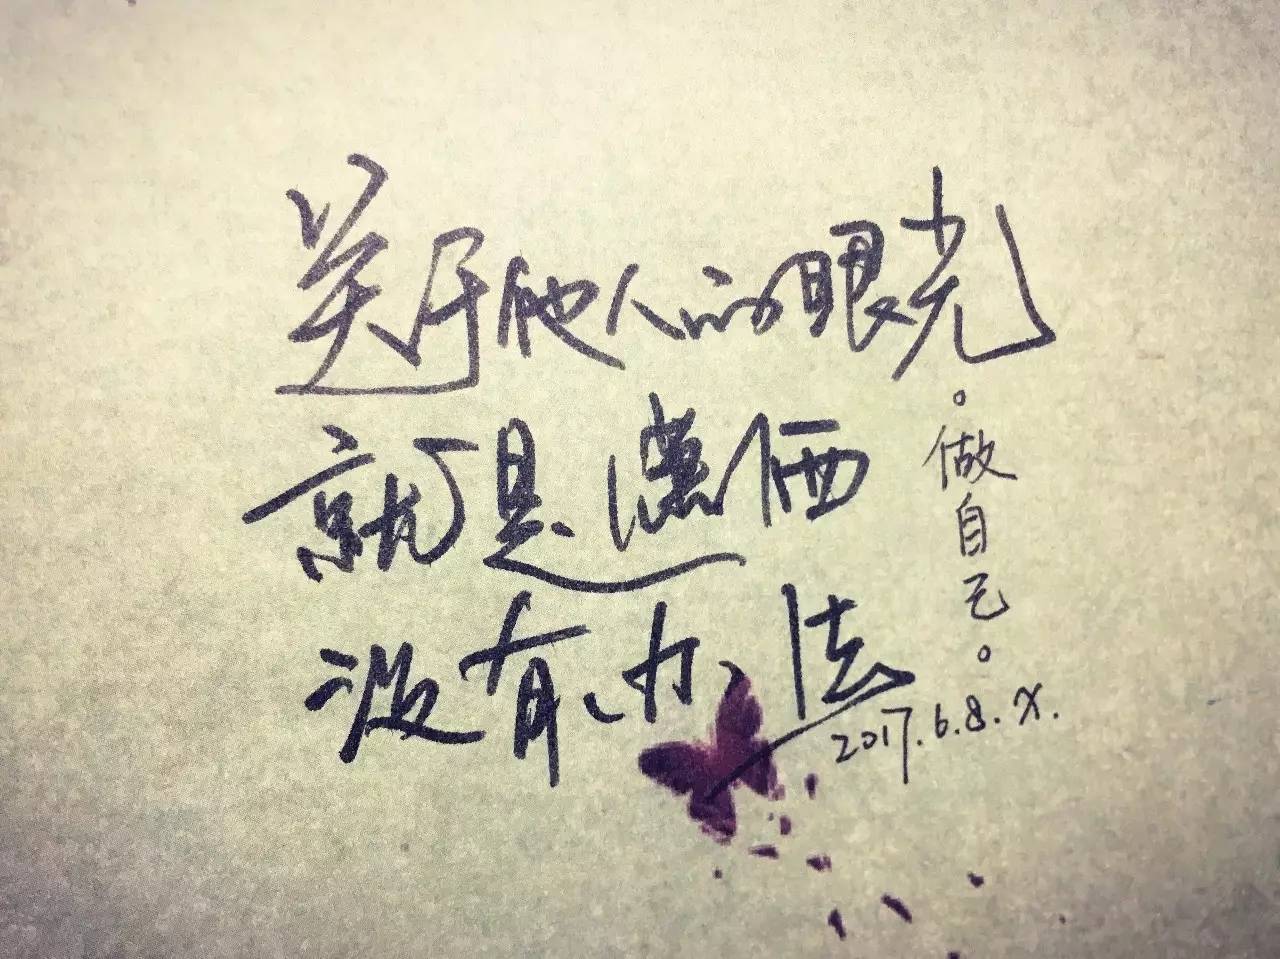 关于他人的眼光
就是潇洒
没有办法
。做自己。
2017.6.8.X.